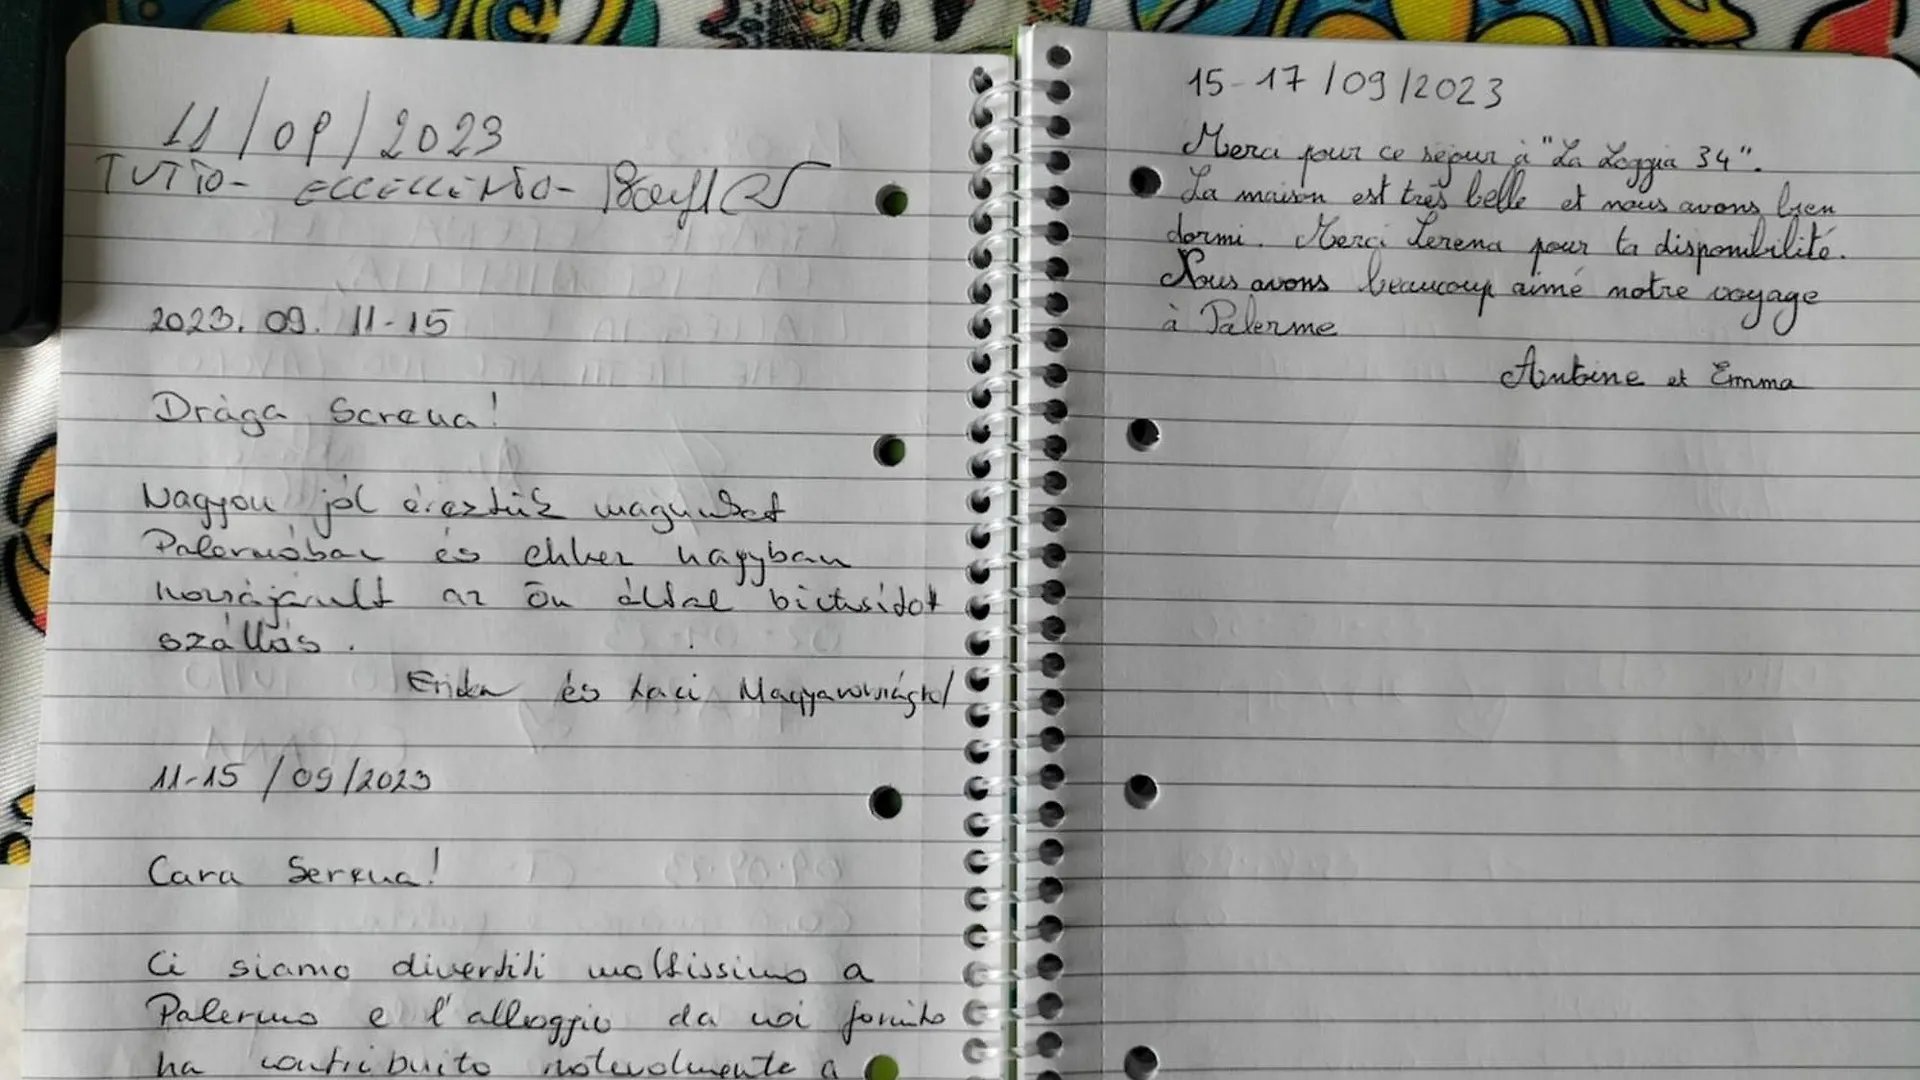 11/09/2023
TUTTO - ECCELLENTE -
2023. 09. 11-15
Drága Serena!
Nagyon jól éreztük magunkat
Palermóban és ehhez nagyban
hozzájárult az Ön által biztosított
szállás.
Erika és Laci Magyarországról
11-15 /09/2023
Cara Serena!
Ci siamo divertiti moltissimo a
Palermo e l'alloggio da voi fornito
ha contribuito notevolmente a
15-17 /09/2023
Merci pour ce séjour à "La Loggia 34".
La maison est très belle et nous avons bien
dormi. Merci Serena pour ta disponibilité.
Nous avons beaucoup aimé notre voyage
à Palerme
Antoine et Emma